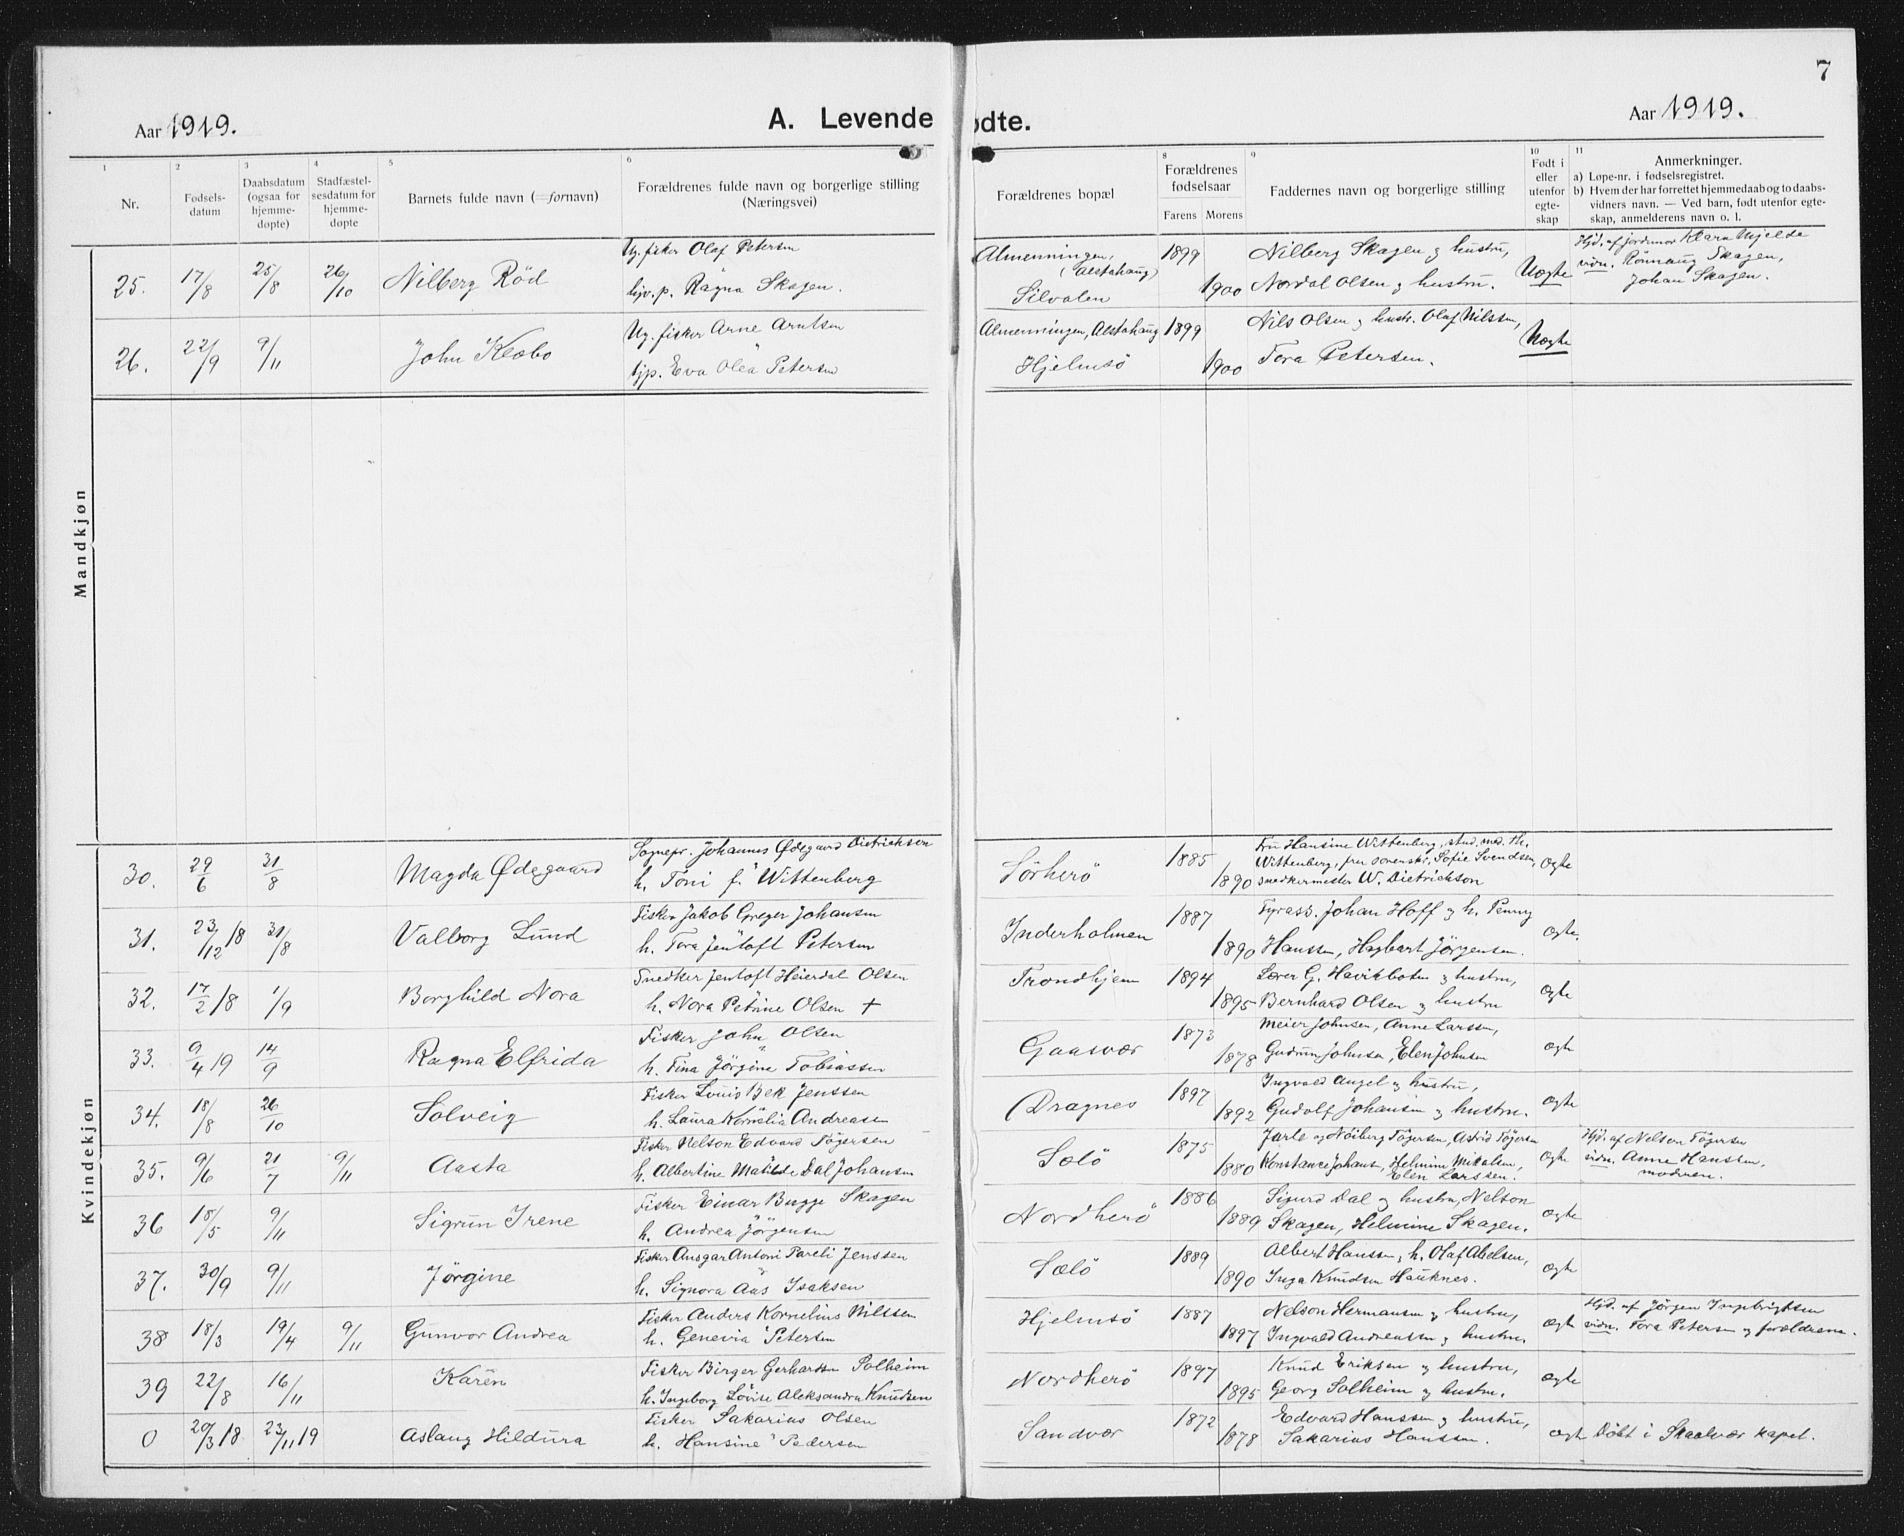 7
Aar 1919.
A. Levende
ødte.
Aar 1919.
1 2 3 4 5 6 8 9 10 11
Nr.
Fødsels-
datum
Daabsdatum
(ogsaa for
hjemme-
døpte)
Stadfæstel-
sesdatum for
hjemme-
døpte
Barnets fulde navn (=fornavn)
Forældrenes fulde navn og borgerlige stilling
(Næringsvei)
Forældrenes bopæl
Forældrenes
fødselsaar
Farens Morens
Faddernes navn og borgerlige stilling
Født i
eller
utenfor
egte-
skap
Anmerkninger.
a) Løpe-nr. i fødselsregistret.
b) Hvem der har forrettet hjemmedaab og to daabs-
vidners navn. — Ved barn, født utenfor egte-
skap, anmelderens navn o. l.
Mandkjøn
25. 17/8 25/8 26/10 Nilberg Röd
Ug. fisker Olaf Petersen
Ragna Skagen.
Almenningen,
(Alstahaug)
Silvalen
1899
1900
Nilberg Skagen og hustru,
Nordal Olsen og hustru.
Uægte
Hjd. af jordmor Klara Mjelde
vidn. Rönnaug Skagen,
Johan Skagen.
26. 22/9 9/11 John Klæbo
Ug. fisker Arne Arntsen
Eva Olea Petersen
Almenningen, Alstahaug
Hjelmsö
1899
1900
Nils Olsen og hustr. Olaf Nilssen,
Tora Petersen.
Uægte
Kvindekjøn
30. 29/6 31/8 Magda Ødegaard
Sognepr. Johannes Ødegaard Dietrichson
h. Toni f. Wittenberg
Sörherö
1885
1890
Fru Hansine Wittenberg, stud. med. Th.
Wittenberg, fru sorenskr. Sofie Svendsen,
snedkermester W. Dietrichson
ægte
31. 23/12 18 31/8 Valborg Lund
Fisker Jakob Greger Johansen
h. Tora Jentoft Petersen
Inderholmen
1887
1890
Fyrass. Johan Hoff og h. Penny
Hanssen, Hagbart Jörgensen.
ægte.
32. 17/2 18 1/9 Borghild Nora
Snedker Jentoft Heierdal Olsen
h. Nora Petrine Olsen +
Trondhjem
1894
1895
Lærer G. Havikboten og hustru,
Bernhard Olsen og hustru
ægte
33. 9/4 19 14/9 Ragna Elfrida
Fisker John Olsen
h. Fina Jörgine Tobiassen
Gaasvær
1873
1878
Meier Johnsen, Anne Larssen,
Gudrun Johnsen, Elen Johnsen
ægte
34. 18/8 26/10 Solveig
Fisker Louis Bek Jenssen
h. Laura Kornelia Andreasen
Dragnes
1897
1892
Ingvald Angel og hustru,
Gudolf Johansen og hustru.
ægte
35. 9/6 21/7 9/11 Aasta
Fisker Nelson Edvard Tögersen
h. Albertine Matilde Dal Johansen
Sælö
1875
1880
Jarle og Nöiberg Tögersen, Astrid Tögersen
Konstance Johans, Helmine Mikalsen,
Elen Larssen.
ægte
Hjd. af Nelson Tögersen
vidn. Anne Hanssen,
moderen.
36 15/5 9/11 Sigrun Irene
Fisker Einar Bugge Skagen
h. Andrea Jörgensen
Nordherö
1886
1889
Sigurd Dal og hustru, Nelson
Skagen, Helmine Skagen.
ægte
37. 30/9 9/11 Jörgine
Fisker Ansgar Antoni Pareli Jenssen
h. Signora Aas Isaksen
Sælö
1889
1890
Albert Hanssen, h. Olaf Abelsen,
Inga Knudsen Hauknes.
ægte
38 18/3 19/4 9/11 Gunvor Andrea
Fisker Anders Kornelius Nilssen
h. Genevia Petersen
Hjelmsö
1887
1897
Nelson Hermansen og hustru,
Ingvald Andreassen og hustru.
ægte
Hjd. af Jörgen Ingebrigtsen
vidn. Tora Petersen og forældrene.
39 22/8 16/11 Karen
Fisker Birger Gerhartsen Solheim
h. Ingeborg Lovise Aleksandra Knudsen
Nordherö
1897
1895
Knud Eriksen og hustru,
Georg Solheim og hustru.
ægte
0 20/3 18 23/11 19 Aslaug Hildura
Fisker Sakarias Olsen
h. Hansine Pedersen
Sandvær
1872
1878
Edvard Hanssen og hustru,
Sakarias Hanssen.
ægte
Döbt i Skaalvær kapel.